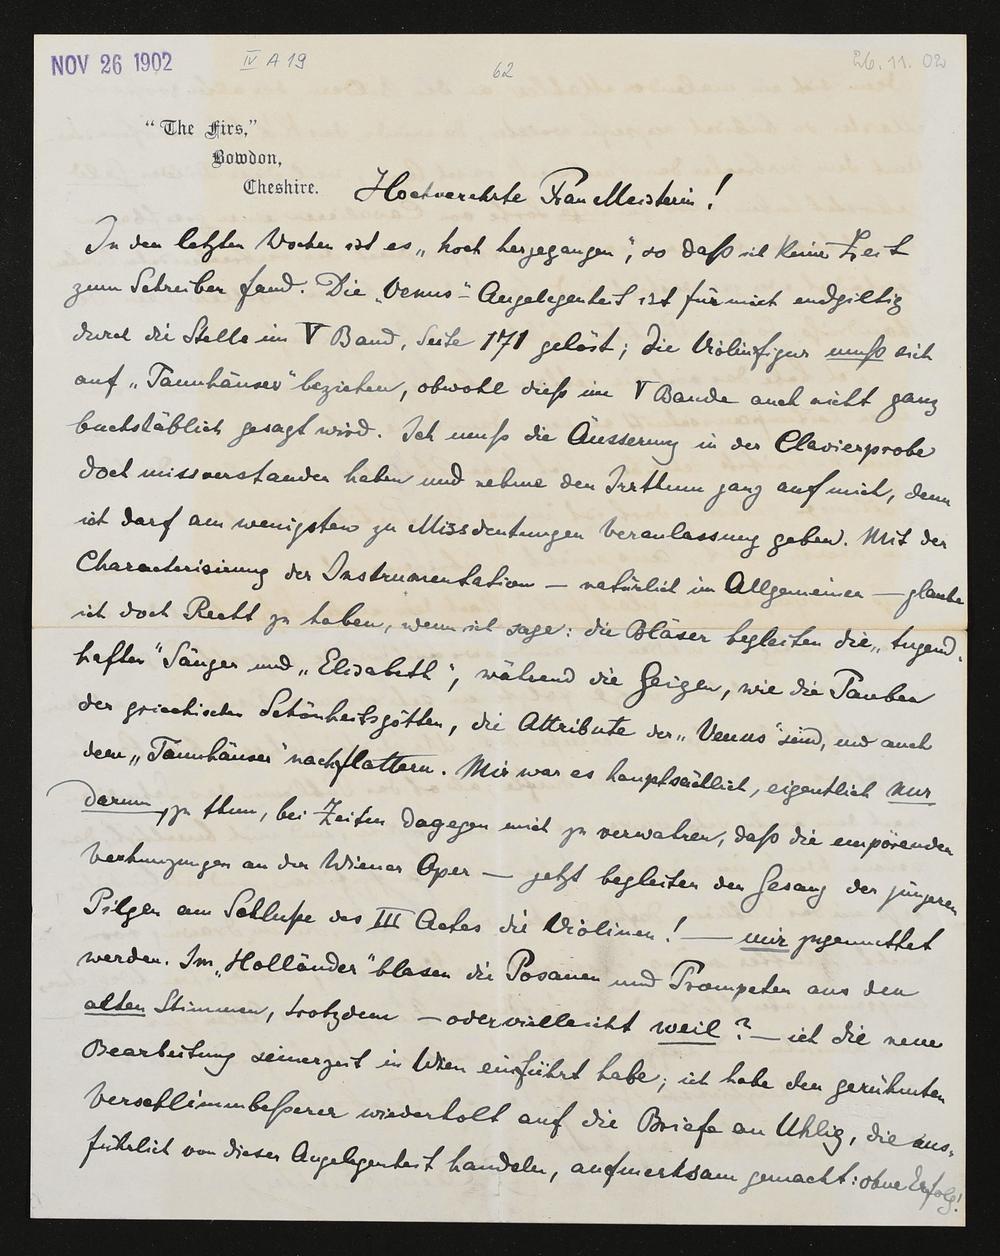 NOV 26 1902
IV A 19
62
26.11.02
"The Firs,"
Bowdon,
Cheshire.
Hochverehrte Frau Meisterin!
In den letzten Wochen ist es „hoch hergegangen“, so daß ich keine Zeit
zum Schreiben fand. Die „Venus“-Angelegenheit ist für mich endgiltig
durch die Stelle im V Band, Seite 171 gelöst; die Violinfigur muß sich
auf „Tannhäuser“ beziehen, obwohl dieß im V Bande auch nicht ganz
buchstäblich gesagt wird. Ich muß die Äusserung in der Clavierprobe
doch missverstanden haben und nehme den Irrthum ganz auf mich, denn
ich darf am wenigsten zu Missdeutungen Veranlassung geben. Mit der
Characterisierung der Instrumentation — natürlich im Allgemeinen — glaube
ich doch Recht zu haben, wenn ich sage: die Bläser begleiten die „tugend-
haften“ Sänger und „Elisabeth“, während die Geigen, wie die Tauben
der griechischen Schönheitsgöttin, die Attribute der „Venus“ sind, und auch
dem „Tannhäuser“ nachflattern. Mir war es hauptsächlich, eigentlich nur
darum, zu thun, bei Zeiten dagegen mich zu verwahren, daß die empörenden
Verhunzungen an der Wiener Oper — jetzt begleiten den Gesang der jüngeren
Pilger am Schluße des III Actes die Violinen! — mir zugemuthet
werden. Im „Holländer“ blasen die Posaunen und Trompeten aus den
alten Stimmen, trotzdem — oder vielleicht weil? — ich die neue
Bearbeitung seinerzeit in Wien eingeführt habe; ich habe den gerühmten
Verschlimmbeßerer wiederholt auf die Briefe an Uhlig, die aus-
führlich von dieser Angelegenheit handeln, aufmerksam gemacht: ohne Erfolg!